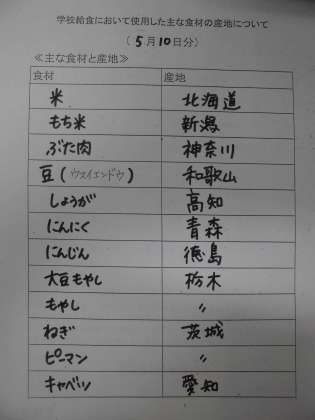 学校給食において使用した主な食材の産地について
(5月10日分)
≪主な食材と産地≫
食材 産地
米 北海道
もち米 新潟
ぶた肉 神奈川
豆(ウスイエンドウ) 和歌山
しょうが 高知
にんにく 青森
にんじん 徳島
大豆もやし 栃木
もやし 〃
ねぎ 茨城
ピーマン 〃
キャベツ 愛知